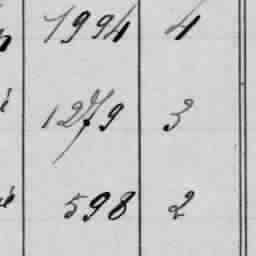 1994 4
1279 3
598 2